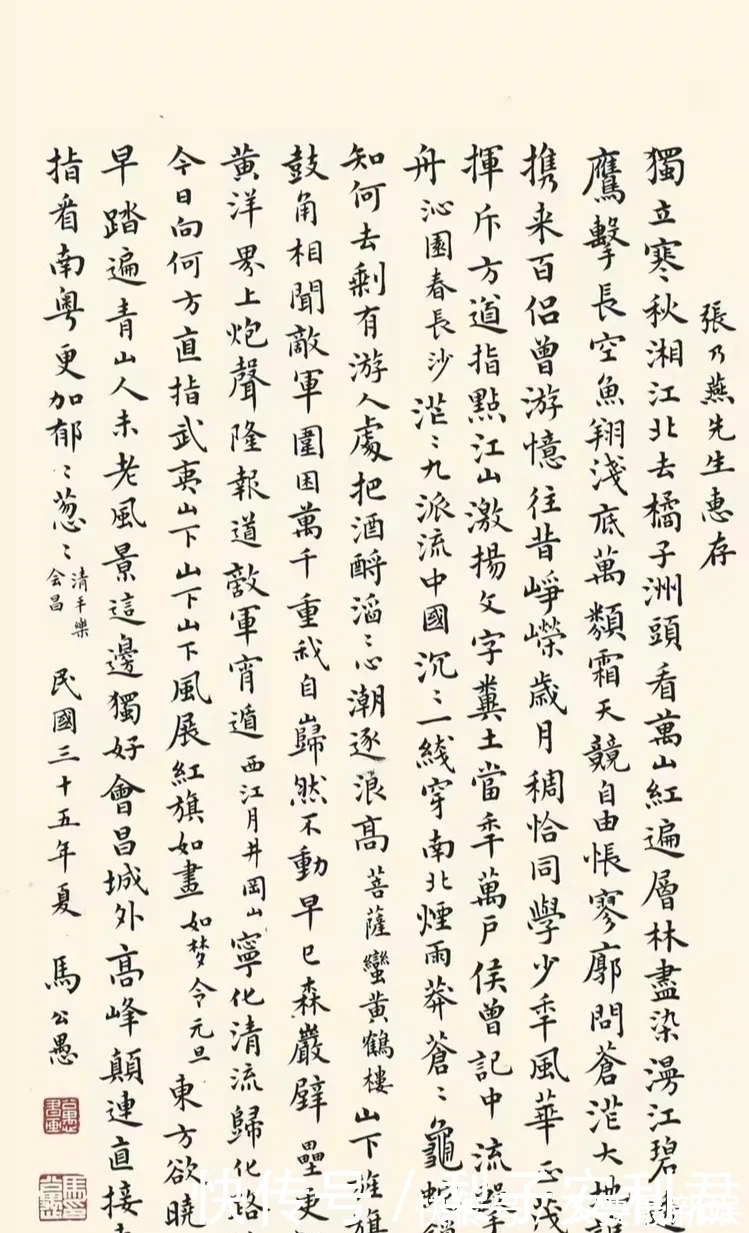 張乃燕先生惠存
獨立寒〻秋湘江北去橘子洲頭看萬山紅遍層林盡染漫江碧
鷹擊長空魚翔淺底萬類霜天競自由悵寥廓問蒼茫大地
攜来百侣曾游憶往昔崢嶸歲月稠恰同學少年風華正茂
揮斥方遒指點江山激揚文字糞土當年萬戶侯曾記中流擊
舟沁園春長沙茫〻九派流中國沉〻一綫穿南北煙雨莽蒼〻龜蛇
知何去剩有游人處把酒酹滔〻心潮逐浪高菩薩蠻黃鶴樓山下旌旗
鼓角相聞敵軍圍困萬千重我自巋然不動早已森嚴壁壘更
黃洋界上炮聲隆報道敵軍宵遁西江月井岡山寧化清流歸化路
今日向何方直指武夷山下山下山下風展紅旗如畫如梦令元旦東方欲曉
早踏遍青山人未老風景這邊獨好會昌城外高峰顛連直接
指看南粵更加郁〻葱〻清平樂会昌民國三十五年夏馬公愚
快传号